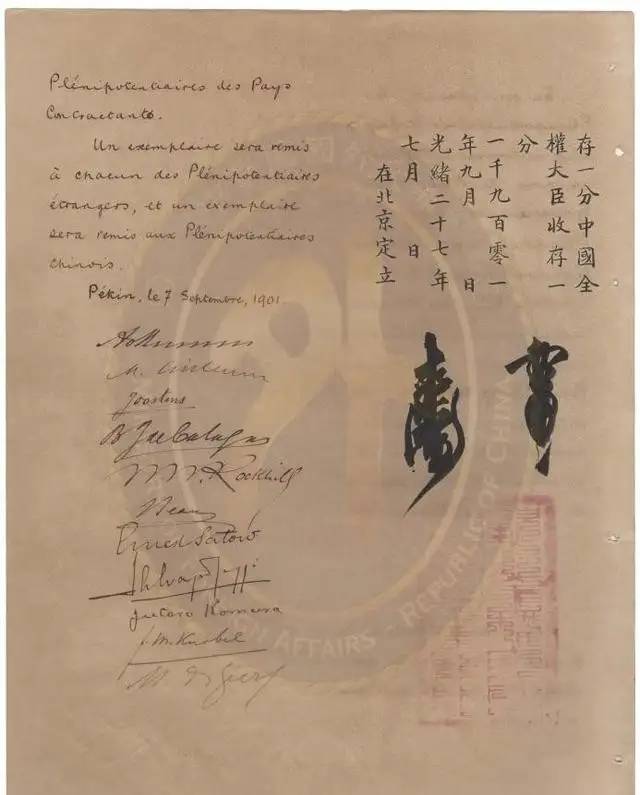 Plénipotentiaires des Pays
Contractants.
Un exemplaire sera remis
à chacun des Plénipotentiaires
étrangers, et un exemplaire
sera remis aux Plénipotentiaires
Chinois.
Pékin, le 7 Septembre, 1901.
Joostens
Rockhill
Beau
Ernest Satow
Jutaro Komura
F. M. Knobel
M de Giers
存一分中國全
權大臣收存一
分
一千九百零一
年九月 日
光緒二十七年
七月 日
在北京定立
AFFAIRS - REPUBLIC OF CHINA